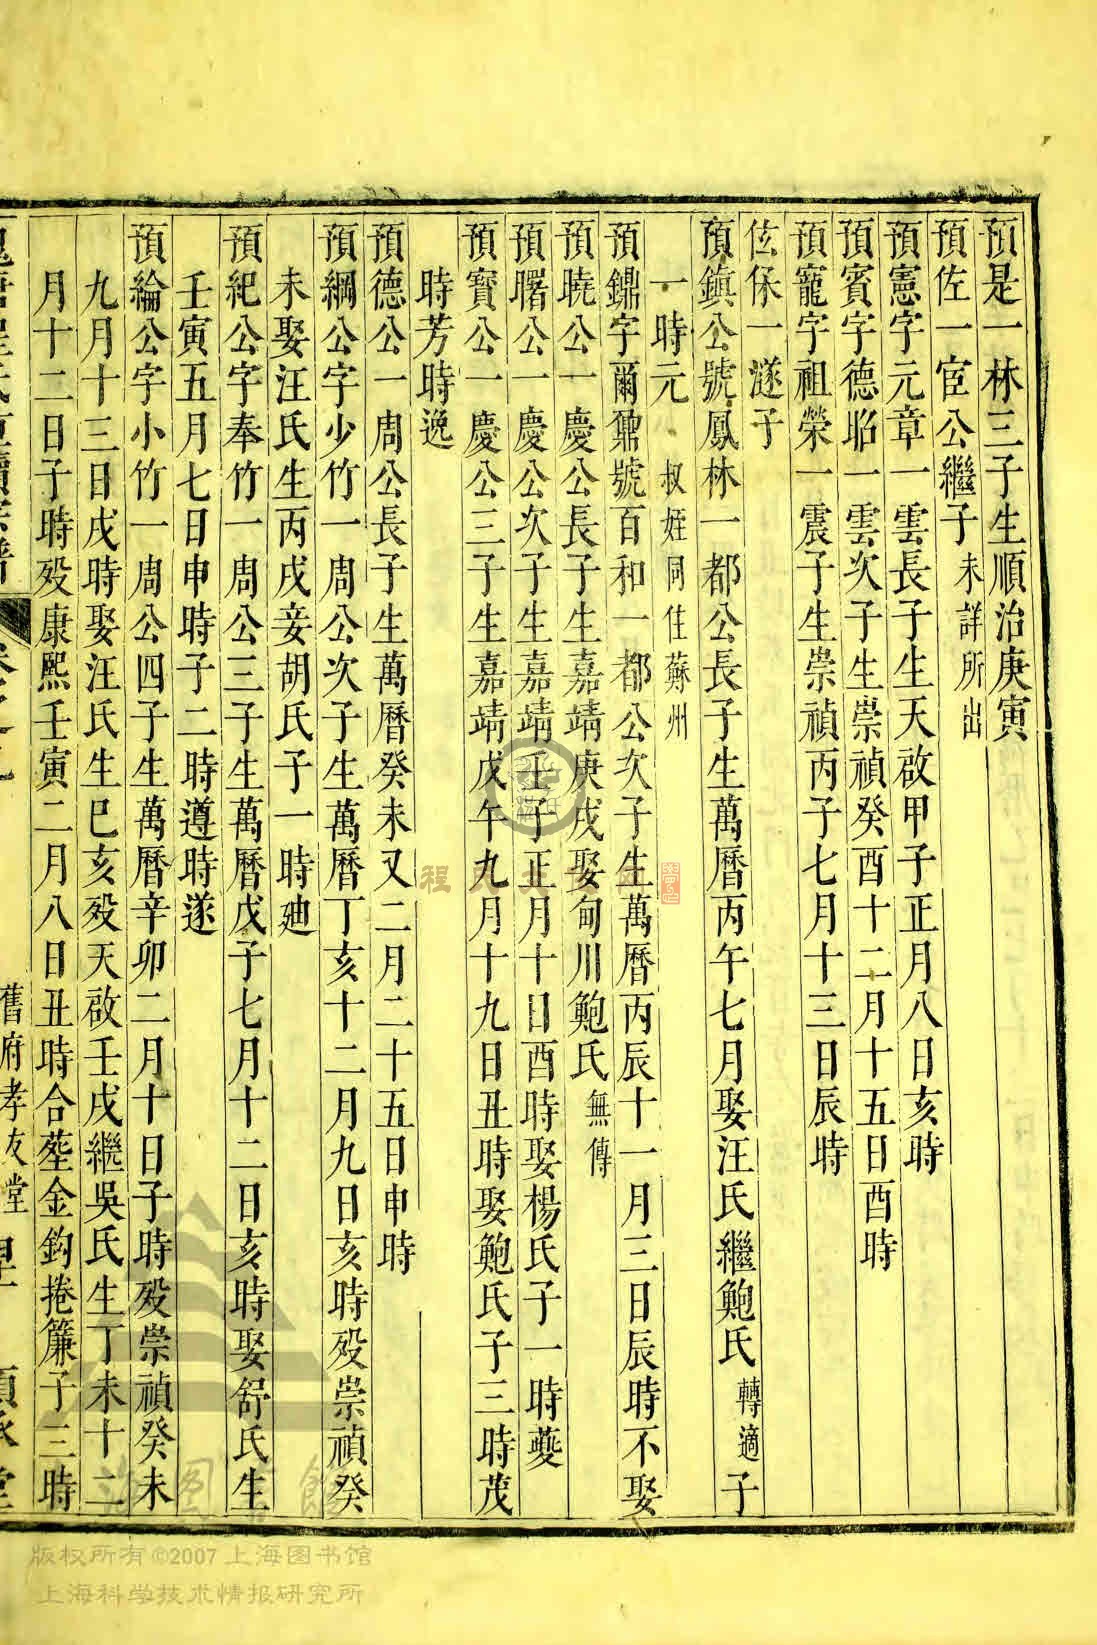 預是一林三子生順治庚寅
預佐一宦公繼子未詳所出
預憲字元章一雲長子生天啟甲子正月八日亥時
預賓字德昭一雲次子生崇禎癸酉十二月十五日酉時
預寵字祖榮一震子生崇禎丙子七月十三日辰時
伭保一遂子
預鎮公號鳳林一都公長子生萬曆丙午七月娶汪氏繼鮑氏轉適子
一時元叔姪同住蘇州
預鼎字爾鼐號百和一都公次子生萬曆丙辰十一月三日辰時不娶
預曉公一慶公長子生嘉靖庚戌娶甸川鮑氏無傳
預曙公一慶公次子生嘉靖壬子正月十日酉時娶楊氏子一時夔
預寶公一慶公三子生嘉靖戊午九月十九日丑時娶鮑氏子三時茂
時芳時逸
預德公一周公長子生萬曆癸未又二月二十五日申時
預綱公字少竹一周公次子生萬曆丁亥十二月九日亥時歿崇禎癸
未娶汪氏生丙戌妾胡氏子一時廸
預紀公字奉竹一周公三子生萬曆戊子七月十二日亥時娶舒氏生
壬寅五月七日申時子二時遵時遂
預綸公字小竹一周公四子生萬曆辛卯二月十日子時歿崇禎癸未
九月十三日戌時娶汪氏生巳亥歿天啟壬戌繼吳氏生丁未十二
月十二日子時歿康熙壬寅二月八日丑時合塟金鈎捲簾子三時
舊府孝友堂
程氏
版权所有©2007上海图书馆
上海科学技术情报研究所